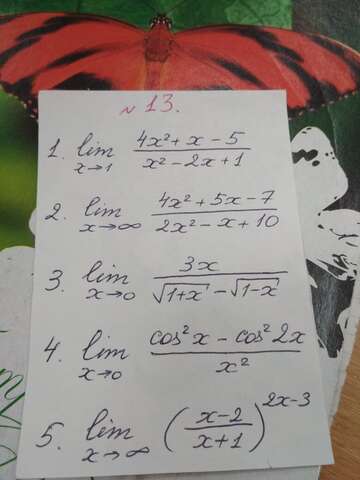 № 13.
1. lim x→1 (4x² + x − 5)/(x² − 2x + 1)
2. lim x→∞ (4x² + 5x − 7)/(2x² − x + 10)
3. lim x→0 3x/(√(1+x) − √(1−x))
4. lim x→0 (cos²x − cos²2x)/x²
5. lim x→∞ ((x−2)/(x+1))^(2x−3)